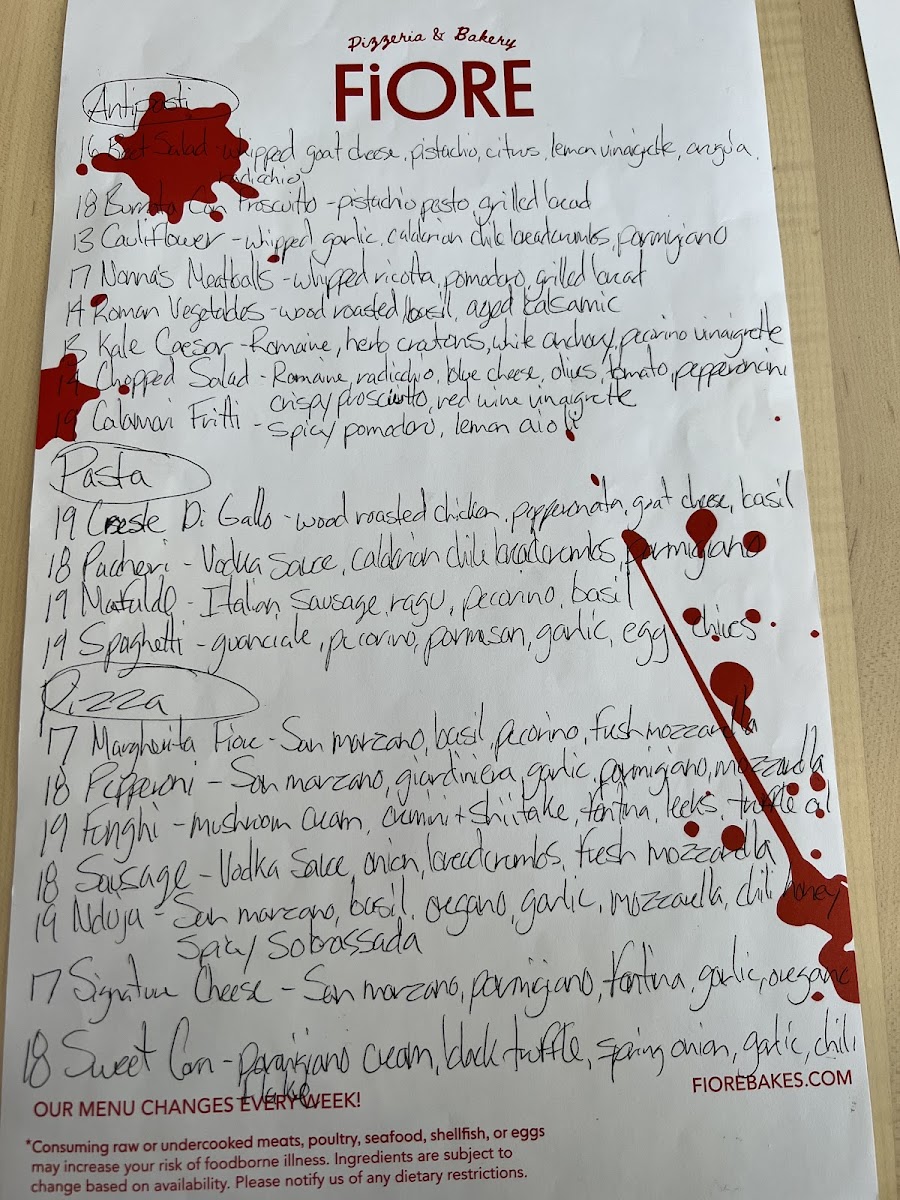 Pizzeria & Bakery
FiORE
Antipasti
16 Beet Salad - whipped goat cheese, pistachio, citrus, lemon vinaigrette, arugula,
radicchio
18 Burrata Con Proscuitto - pistachio pesto, grilled bread
13 Cauliflower - whipped garlic, calabrian chile breadcrumbs, parmigiano
17 Nonna's Meatballs - whipped ricotta, pomodoro, grilled bread
14 Roman Vegetables - wood roasted basil, aged balsamic
13 Kale Caesar - Romaine, herb cratons, white anchovy, pecorino vinaigrette
14 Chopped Salad - Romaine, radicchio, blue cheese, olives, tomato, pepperoncini
crispy prosciutto, red wine vinaigrette
19 Calamari Fritti - spicy pomodoro, lemon aioli
Pasta
19 Creste Di Gallo - wood roasted chicken, pepperonata, goat cheese, basil
18 Pacheri - Vodka Sauce, calabrian chile breadcrumbs, parmigiano
19 Mafalde - Italian Sausage ragu, pecorino, basil
19 Spaghetti - guanciale, pecorino, parmesan, garlic, egg chives
Pizza
17 Margherita Fiore - San marzano, basil, pecorino, fresh mozzarella
18 Pepperoni - San marzano, giardiniera, garlic, parmigiano, mozzarella
19 Funghi - mushroom cream, crimini + shiitake, fontina, leeks, truffle oil
18 Sausage - Vodka Sauce, onion, breadcrumbs, fresh mozzarella
19 Nduja - San marzano, basil, oregano, garlic, mozzarella, chili honey
Spicy Sobrassada
17 Signature Cheese - San marzano, parmigiano, fontina, garlic, oregano
18 Sweet Corn - parmigiano cream, black truffle, spring onion, garlic, chili
flake
FIOREBAKES.COM
OUR MENU CHANGES EVERY WEEK!
*Consuming raw or undercooked meats, poultry, seafood, shellfish, or eggs
may increase your risk of foodborne illness. Ingredients are subject to
change based on availability. Please notify us of any dietary restrictions.